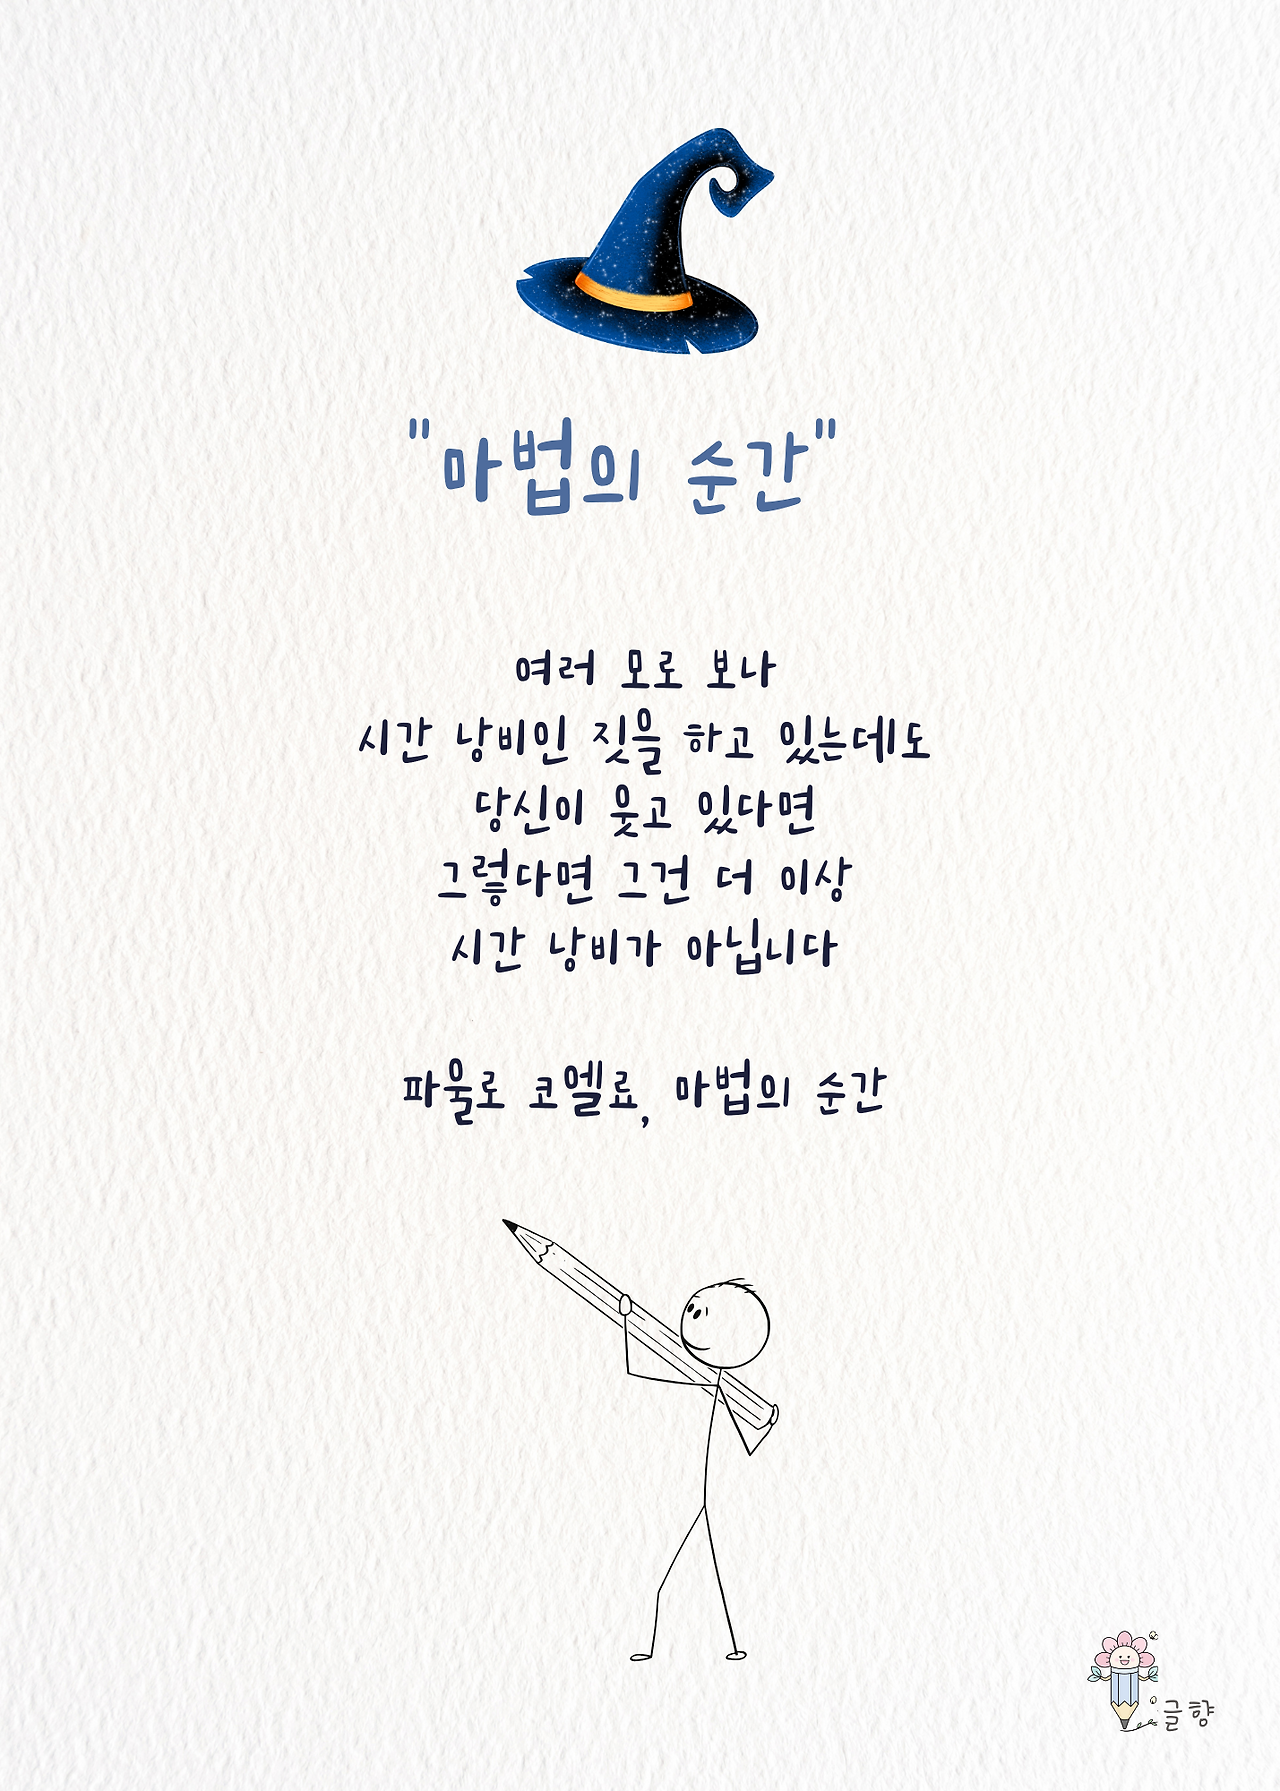 "마법의 순간"
여러 모로 보나
시간 낭비인 짓을 하고 있는데도
당신이 웃고 있다면
그렇다면 그건 더 이상
시간 낭비가 아닙니다
파울로 코엘료, 마법의 순간
글향